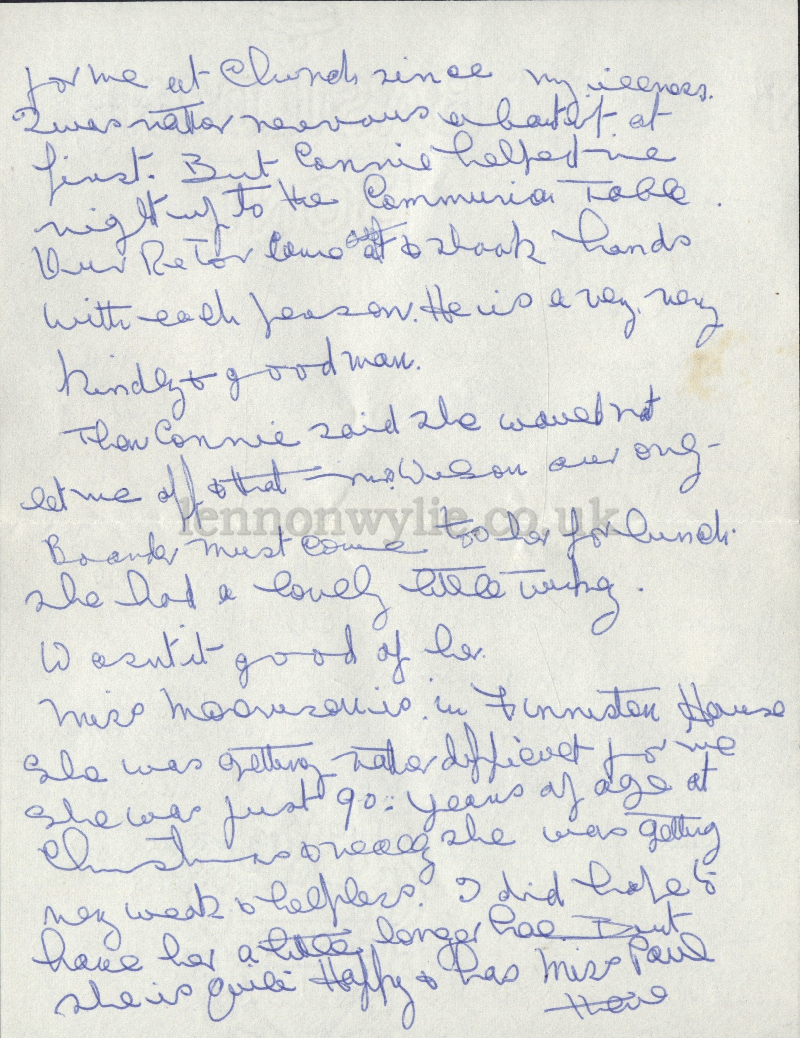 for me at Church since my illness.
I was rather nervous about it at
first. But Connie helped me
right up to the Communion Table.
Our Rector came & shook hands
with each person. He is a very, very
kindly & good man.
Then Connie said she would not
let me off & that Mrs Wilson our only
Boarder must come to her for lunch.
She had a lovely little Turkey.
Wasn't it good of her.
Miss is in Finniston House
She was getting rather difficult for me
She was just 90 years of age at
Christmas & really she was getting
very weak & helpless. I did hope to
have her a little longer here. But
she is quite Happy & has Miss Paul
there
lennonwylie.co.uk